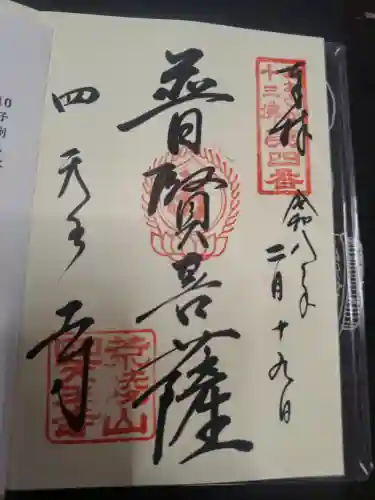 奉拝
十三佛
第四番
令和八年
二月十九日
普賢菩薩
四天王寺
荒陵山
四天王寺